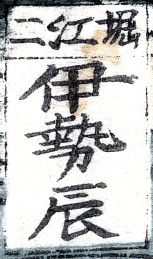 堀江二
伊勢辰